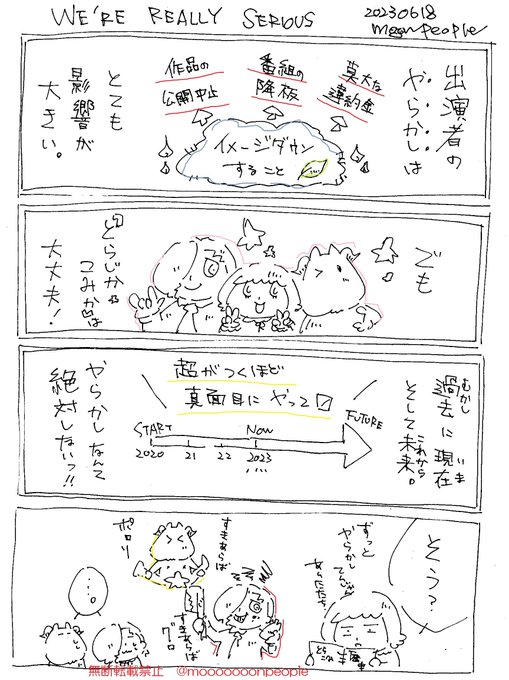 WE'RE REALLY SERIOUS
20230618
moonpeople
出演者の
やらかしは
莫大な
違約金
番組の
降板
作品の
公開中止
イメージダウン
すること
とても
影響が
大きい。
でも
とらじか
つみかは
大丈夫!
過去に現在
むかし いま
そして未来。
これから
超がつくほど
真面目にやって
START
2020
21
22
Now
2023
FUTURE
やらかしなんて
絶対しないっ!!
そう?
ずっと
やらかし
てんじゃん
あんたたち
すきあらば
ポロリ
すきあらば
グロ
歴史
無断転載禁止 @mooooooonpeople